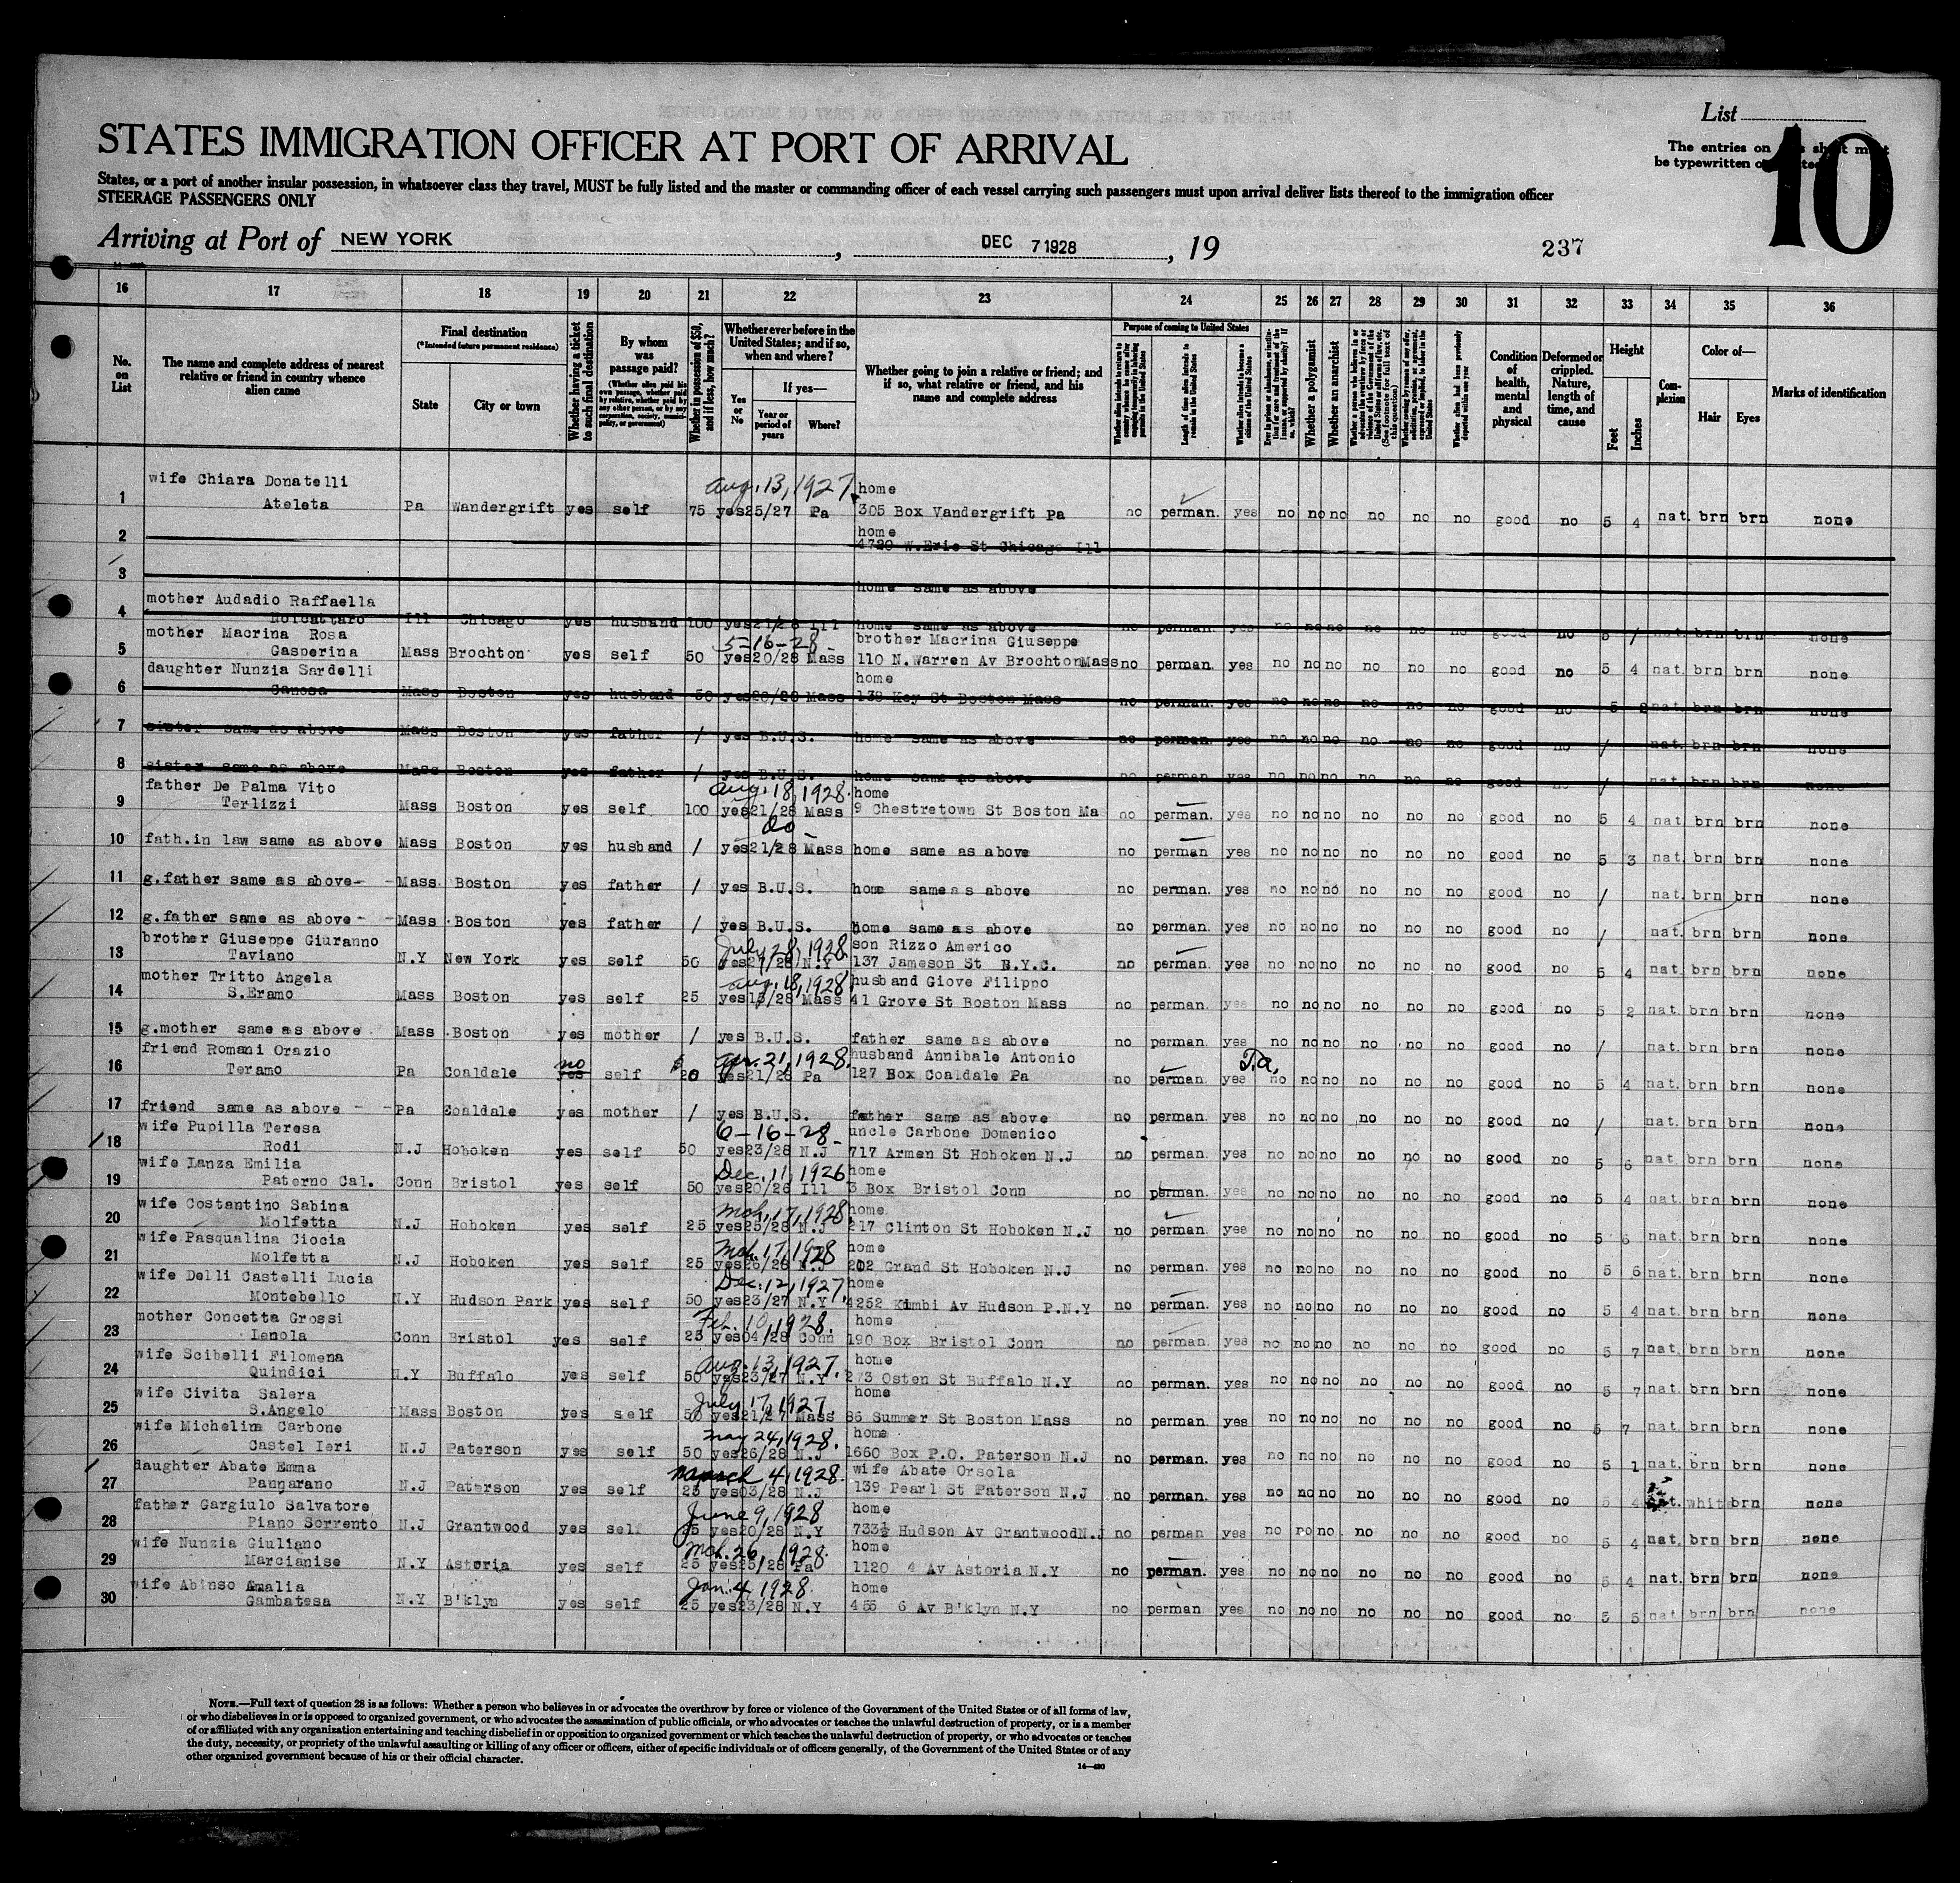 List
10
The entries on
be typewritten
STATES IMMIGRATION OFFICER AT PORT OF ARRIVAL
States, or a port of another insular possession, in whatsoever class they travel, MUST be fully listed and the master or commanding officer of each vessel carrying such passengers must upon arrival deliver lists thereof to the immigration officer
STEERAGE PASSENGERS ONLY
Arriving at Port of NEW YORK, DEC 7 1928, 19 237
16 17 18 19 20 21 22 23 24 25 26 27 28 29 30 31 32 33 34 35 36
No. on List
The name and complete address of nearest relative or friend in country whence alien came
Final destination
(*Intended future permanent residence)
State
City or town
Whether having a ticket to such final destination
By whom was passage paid?
(Whether alien paid his own passage, whether paid by relative, whether paid by any other person, or by any corporation, society, municipality, or government)
Whether in possession of $50, and if less, how much?
Whether ever before in the United States; and if so, when and where?
Yes or No
If yes—
Year or period of years
Where?
Whether going to join a relative or friend; and if so, what relative or friend, and his name and complete address
Purpose of coming to United States
Length of time alien intends to remain in the United States
Whether alien intends to become a citizen of the United States
Whether a polygamist
Whether an anarchist
Condition of health, mental and physical
Deformed or crippled. Nature, length of time, and cause
Height
Feet
Inches
Complexion
Color of—
Hair
Eyes
Marks of identification
wife Chiara Donatelli Aug. 13, 1927 home
1 Ateleta Pa Wandergrift yes self 75 yes 25/27 Pa 305 Box Vandergrift Pa no perman. yes no no no no no no good no 5 4 nat. brn brn none
home
2 4720 W.Erie St Chicago Ill
3 home same as above
mother Audadio Raffaella
4 Noicattaro Ill Chicago yes husband 100 yes 21/28 Ill home same as above no perman. yes no no no no no no good no 5 / nat. brn brn none
mother Macrina Rosa 5-16-28 brother Macrina Giuseppe
5 Gasperina Mass Brochton yes self 50 yes 20/28 Mass 110 N.Warren Av Brochton Mass no perman. yes no no no no no no good no 5 4 nat. brn brn none
daughter Nunzia Sardelli home
6 Canosa Mass Boston yes husband 50 yes 20/28 Mass 138 Key St Boston Mass no perman. yes no no no no no no good no 5 2 nat. brn brn none
7 sister same as above Mass Boston yes father / yes B.U.S. home same as above no perman. yes no no no no no no good no / nat. brn brn none
8 sister same as above Mass Boston yes father / yes B.U.S. home same as above no perman. yes no no no no no no good no / nat. brn brn none
father De Palma Vito Aug. 18, 1928. home
9 Terlizzi Mass Boston yes self 100 yes 21/28 Mass 9 Chestretown St Boston Ma no perman. yes no no no no no no good no 5 4 nat. brn brn none
do
10 fath.in law same as above Mass Boston yes husband / yes 21/28 Mass home same as above no perman yes no no no no no no good no 5 3 nat. brn brn none
11 g.father same as above- -Mass. Boston yes father / yes B.U.S. home same as above no perman. yes no no no no no no good no / nat. brn brn none
12 g.father same as above - -Mass Boston yes father / yes B.U.S. home same as above no perman. yes no no no no no no good no / nat. brn brn none
brother Giuseppe Giuranno July 28, 1928 son Rizzo Americo
13 Taviano N.Y New York yes self 50 yes 27/28 N.Y 137 Jameson St N.Y.C. no perman. yes no no no no no no good no 5 4 nat. brn brn none
mother Tritto Angela Aug. 18, 1928 husband Giove Filippo
14 S.Eramo Mass Boston yes self 25 yes 15/28 Mass 41 Grove St Boston Mass no perman. yes no no no no no no good no 5 2 nat. brn brn none
15 g.mother same as above Mass Boston yes mother / yes B.U.S. father same as above no perman. yes no no no no no no good no / nat. brn brn none
friend Romani Orazio no $ Apr. 21, 1928. husband Annibale Antonio T.a.
16 Teramo Pa Coaldale yes self 20 yes 21/28 Pa 127 Box Coaldale Pa no perman. yes no no no no no no good no 5 4 nat. brn brn none
17 friend same as above - -Pa Coaldale yes mother / yes B.U.S. father same as above no perman. yes no no no no no no good no / nat. brn brn none
wife Pupilla Teresa 6-16-28 uncle Carbone Domenico
18 Rodi N.J Hoboken yes self 50 yes 23/28 N.J 717 Armen St Hoboken N.J no perman. yes no no no no no no good no 5 6 nat. brn brn none
wife Lanza Emilia Dec. 11, 1926 home
19 Paterno Cal. Conn Bristol yes self 50 yes 20/26 Ill 3 Box Bristol Conn no perman. yes no no no no no no good no 5 4 nat. brn brn none
wife Costantino Sabina Mch. 17, 1928 home
20 Molfetta N.J Hoboken yes self 25 yes 25/28 N.J 217 Clinton St Hoboken N.J no perman. yes no no no no no no good no 5 6 nat. brn brn none
wife Pasqualina Ciocia Mch. 17, 1928 home
21 Molfetta N.J Hoboken yes self 25 yes 26/28 N.J 202 Grand St Hoboken N.J no perman. yes no no no no no no good no 5 6 nat. brn brn none
wife Delli Castelli Lucia Dec. 12, 1927, home
22 Montebello N.Y Hudson Park yes self 50 yes 23/27 N.Y 4252 Kimbi Av Hudson P.N.Y no perman. yes no no no no no no good no 5 4 nat. brn brn none
mother Concetta Grossi Feb. 10, 1928. home
23 Lenola Conn Bristol yes self 25 yes 04/28 Conn 190 Box Bristol Conn no perman. yes no no no no no no good no 5 7 nat. brn brn none
wife Scibelli Filomena Aug. 13, 1927, home
24 Quindici N.Y Buffalo yes self 50 yes 23/27 N.Y 273 Osten St Buffalo N.Y no perman. yes no no no no no no good no 5 7 nat. brn brn none
wife Civita Salera July 17, 1927 home
25 S.Angelo Mass Boston yes self 50 yes 21/27 Mass 86 Summer St Boston Mass no perman. yes no no no no no no good no 5 7 nat. brn brn none
wife Michelina Carbone May 24, 1928. home
26 Castel Ieri N.J Paterson yes self 50 yes 26/28 N.J 1660 Box P.O. Paterson N.J no perman. yes no no no no no no good no 5 1 nat. brn brn none
daughter Abate Emma March 4, 1928. wife Abate Orsola
27 Pannarano N.J Paterson yes self 25 yes 03/28 N.J 139 Pearl St Paterson N.J no perman. yes no no no no no no good no 5 4 nat. whit brn none
father Gargiulo Salvatore June 9, 1928 home
28 Piano Sorrento N.J Grantwood yes self yes 20/28 N.Y 733½ Hudson Av Grantwood N.J no perman yes no no no no no no good no 5 4 nat. brn brn none
wife Nunzia Giuliano Mch. 26, 1928. home
29 Marcianise N.Y Astoria yes self 25 yes 25/28 Pa 1120 4 Av Astoria N.Y no perman. yes no no no no no no good no 5 4 nat. brn brn none
wife Abinso Amalia Jan. 4, 1928. home
30 Gambatesa N.Y B'klyn yes self 25 yes 23/28 N.Y 455 6 Av B'klyn N.Y no perman yes no no no no no no good no 5 5 nat. brn brn none
NOTE.—Full text of question 28 is as follows: Whether a person who believes in or advocates the overthrow by force or violence of the Government of the United States or of all forms of law,
or who disbelieves in or is opposed to organized government, or who advocates the assassination of public officials, or who advocates or teaches the unlawful destruction of property, or is a member
of or affiliated with any organization entertaining and teaching disbelief in or opposition to organized government or which teaches the unlawful destruction of property, or who advocates or teaches
the duty, necessity, or propriety of the unlawful assaulting or killing of any officer or officers, either of specific individuals or of officers generally, of the Government of the United States or of any
other organized government because of his or their official character.